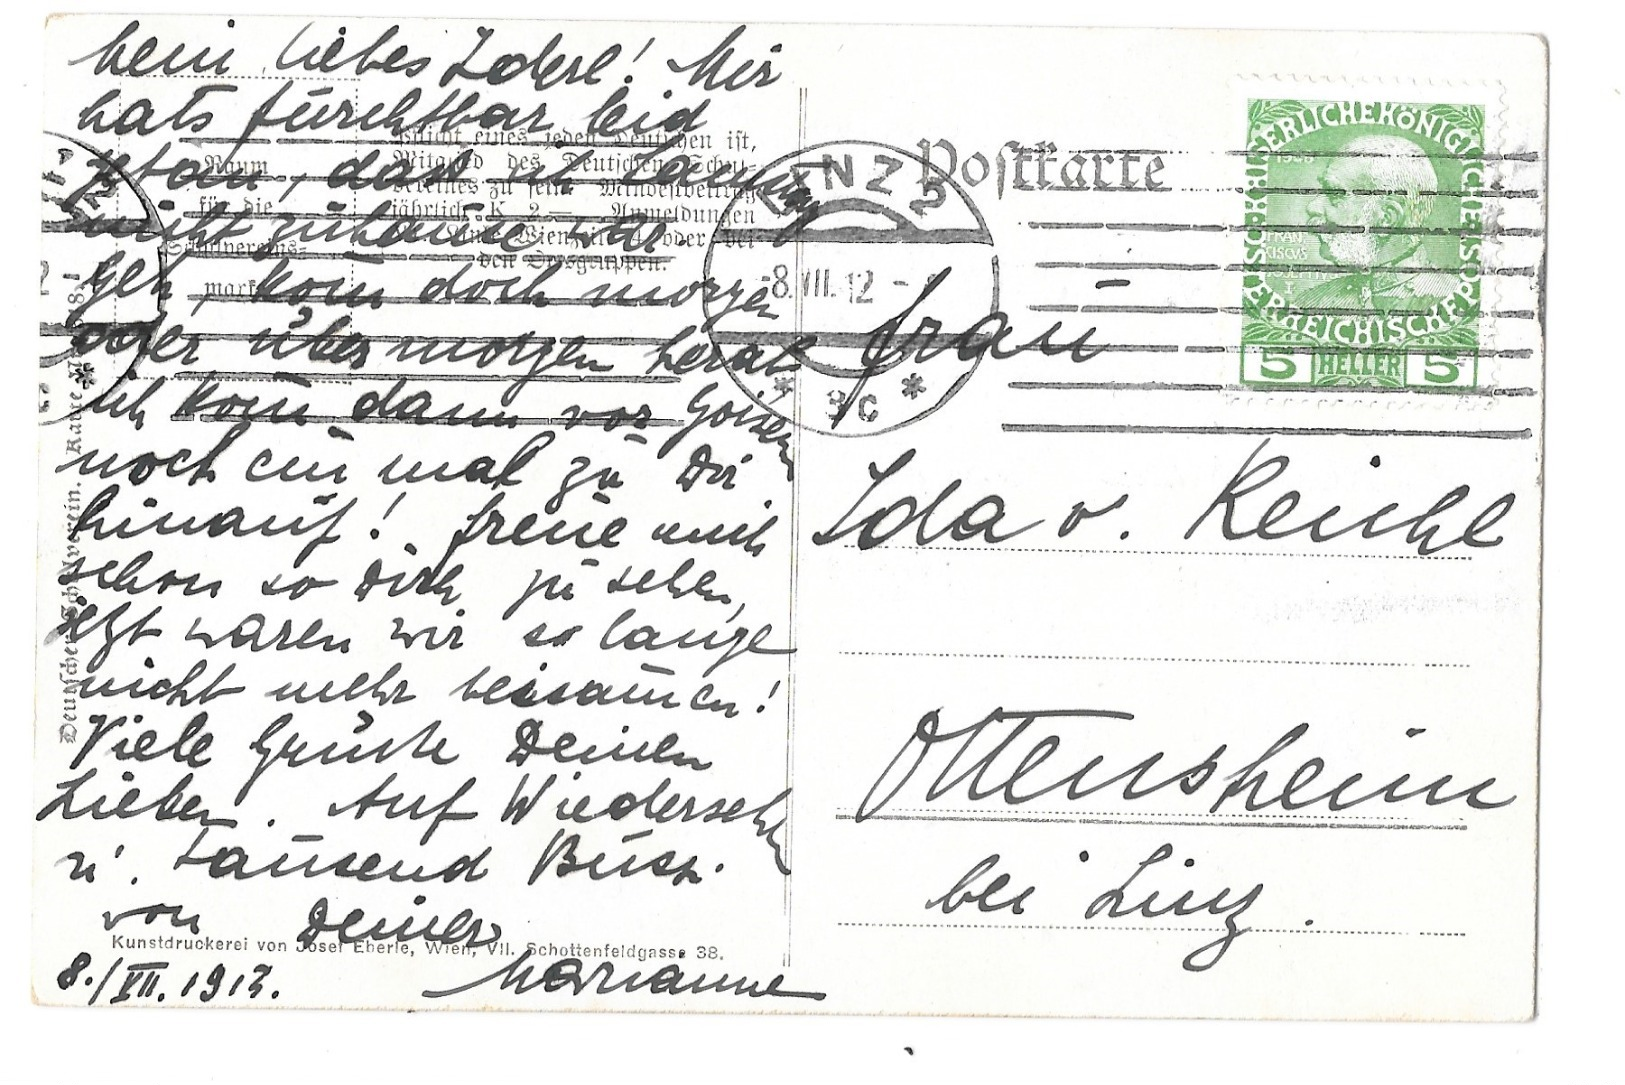 Mein liebes Iderl! Mir
hats furchtbar leid
getan, dass ich
nicht zuhause war
geh, kom̄ doch morgen
oder übermorgen herab
ich kom̄ dann vor Goisern
noch ein mal zu Dir
hinauf! freue mich
schon so Dich zu sehen,
jetzt waren wir so lange
nicht mehr beisam̄en!
Viele Grüsse Deinen
Lieben. Auf Wiedersehen
u. tausend Buss.
von Deiner
Marianne
8./VII. 1912.
Raum
für die
Schulvereins-
marke
Pflicht eines jeden Deutschen ist,
Mitglied des Deutschen Schul-
vereines zu sein. Mindestbeitrag
jährlich K 2.— Anmeldungen
Linke Wienzeile 4, oder bei
den Ortsgruppen.
Deutscher Schulverein. Karte Nr.
Kunstdruckerei von Josef Eberle, Wien, VII. Schottenfeldgasse 38.
Postkarte
LINZ 2
-8.VII.12-
* 3c *
SERLICHEKÖNIGLICHE
ERREICHISCHE
1908
FRAN
CISCVS
I
5 HELLER 5
Frau
Ida v. Reichl
Ottensheim
bei Linz.